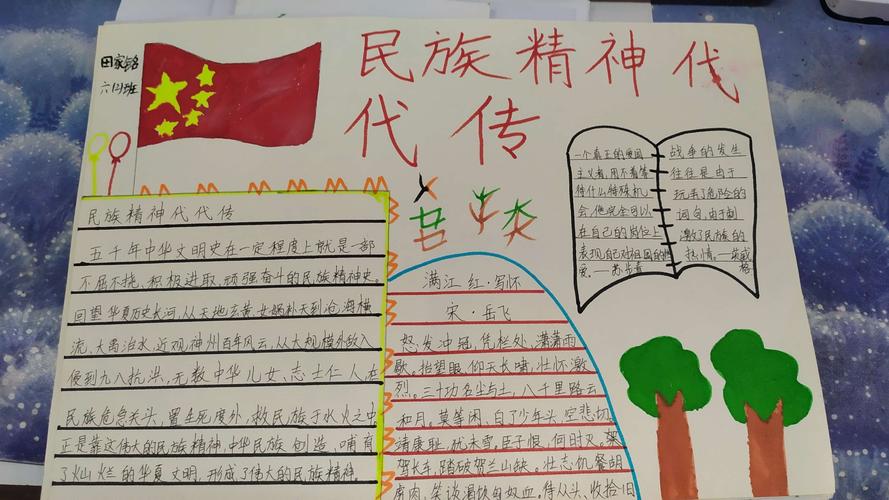 民族精神代
代传
田家铭
六(2)班
民族精神代代传
五千年中华文明史在一定程度上就是一部
不屈不挠、积极进取、顽强奋斗的民族精神史。
回望华夏历史长河,从天地玄黄、女娲补天到沧海横
流、大禹治水,近观神州百年风云,从大规模外敌入
侵到九八抗洪,无数中华儿女、志士仁人在
民族危急关头,置生死度外,救民族于水火之中
正是靠这伟大的民族精神,中华民族创造,哺育
了灿烂的华夏文明,形成了伟大的民族精神。
满江红·写怀
宋·岳飞
怒发冲冠,凭栏处、潇潇雨
歇。抬望眼,仰天长啸,壮怀激
烈。三十功名尘与土,八千里路云
和月。莫等闲、白了少年头,空悲切
靖康耻,犹未雪。臣子恨,何时灭。
驾长车,踏破贺兰山缺。壮志饥餐胡
虏肉,笑谈渴饮匈奴血。待从头、收拾旧
一个真正的爱国
主义者,用不着等
待什么特殊机
会,他完全可以
在自己的岗位上
表现自己对祖国的热
爱。——苏步青
战争的发生
往往是由于
玩弄了危险的
词句,由于刺
激了民族的
热情。——英